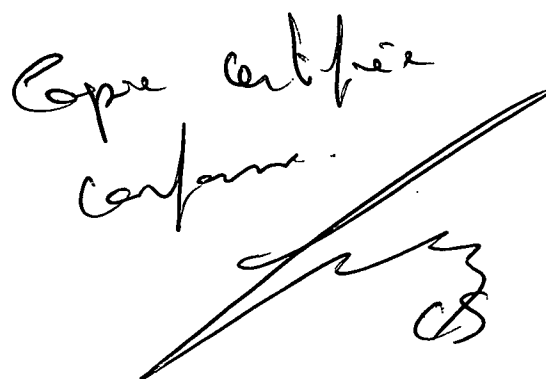 Copie certifiée
conforme.
CS